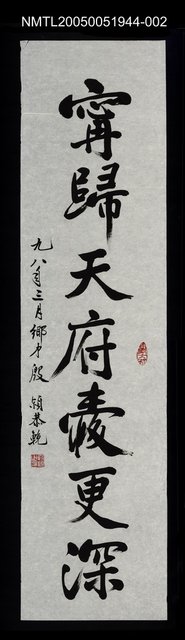 NMTL20050051944-002
寗歸天府愛更深
九八年三月鄉弟殷穎恭輓